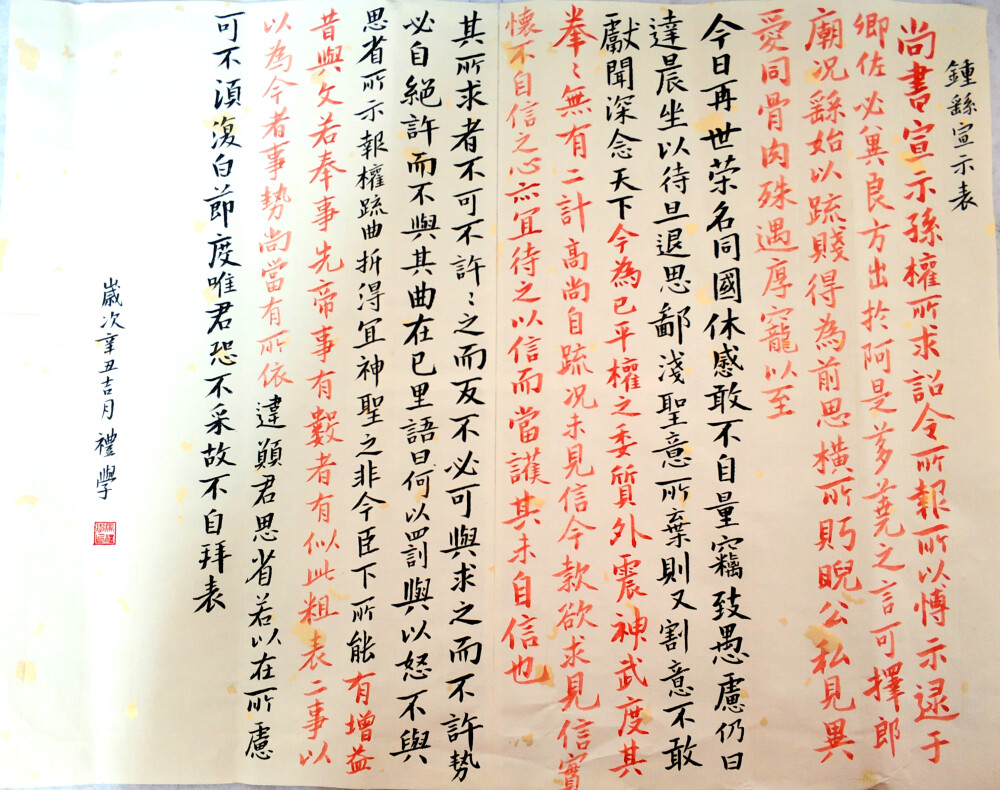 鍾繇宣示表
尚書宣示孫權所求詔令所報所以博示逮于
卿佐必冀良方出於阿是芻蕘之言可擇郎
廟況繇始以疏賤得為前思橫所眄睨公私見異
愛同骨肉殊遇厚寵以至
今日再世荣名同國休慼敢不自量竊致愚慮仍日
達晨坐以待旦退思鄙淺聖意所棄則又割意不敢
獻聞深念天下今為已平權之委質外震神武度其
拳〻無有二計高尚自疏況未見信今款欲求見信實
懷不自信之心亦宜待之以信而當護其未自信也
其所求者不可不許〻之而反不必可與求之而不許勢
必自絕許而不與其曲在己里語曰何以罰與以怒不與
思省所示報權疏曲折得宜神聖之非今臣下所能有增益
昔與文若奉事先帝事有數者有似此粗表二事以
以為今者事勢尚當有所依違願君思省若以在所慮
可不須復白節度唯君恐不采故不自拜表
歲次辛丑吉月 禮學